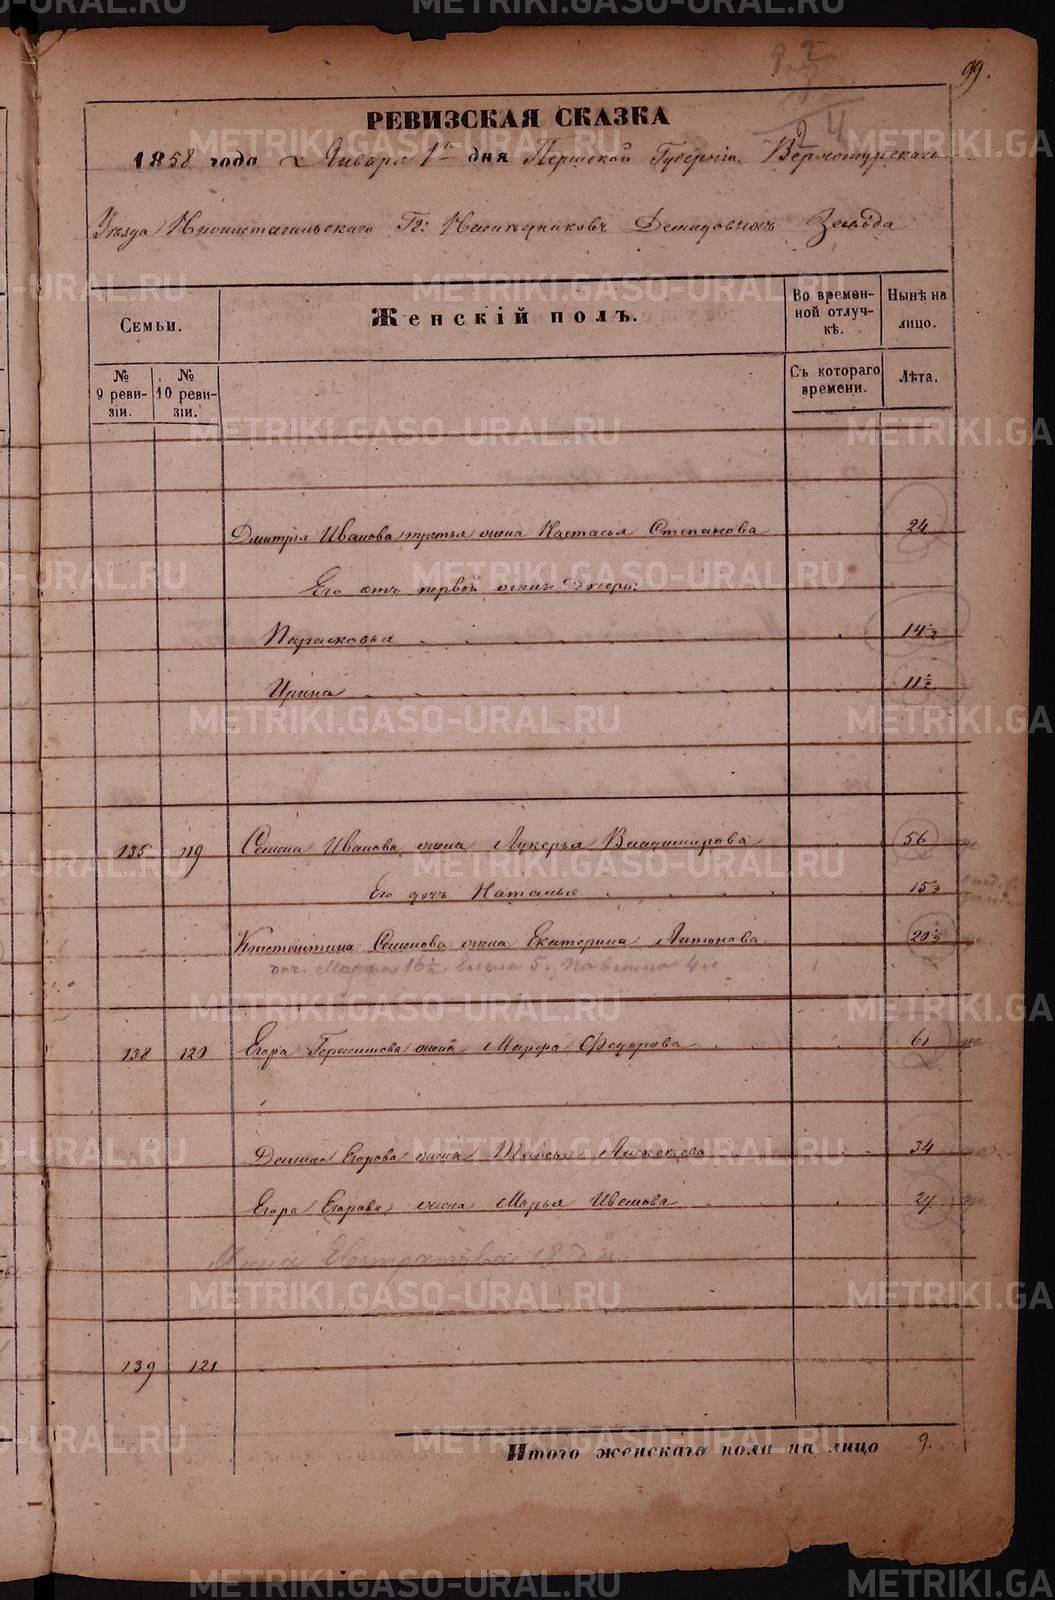 99.
РЕВИЗСКАЯ СКАЗКА
1858 года Января 1го дня Пермской Губернiи Верхотурскаго
Уѣзда Нижнетагильскаго Гг: Наслѣдниковъ Демидовыхъ Завода
Семьи.
Женскiй полъ.
Во времен-
ной отлуч-
кѣ.
Нынѣ на
лицо.
№
9 реви-
зiи.
№
10 реви-
зiи.
Съ котораго
времени.
Лѣта.
Дмитрiя Иванова третья жена Настасья Степанова 24
Его отъ первой жены дочери:
Парасковья 14½
Ирина 11½
135 119 Семена Иванова жена Лукерья Владимирова 56
Его дочь Наталья 15½
Константина Семенова жена Екатерина Антонова 20½
доч. Марфа 16½ Елена 5.
138 120 Егора Герасимова жена Марфа Федорова 61
Егорова жена Таисья 34
Егора Егорова жена Марья Иванова 24
Евстратова 18
139 121
Итого женскаго пола на лицо 9.
METRIKI.GASO-URAL.RU